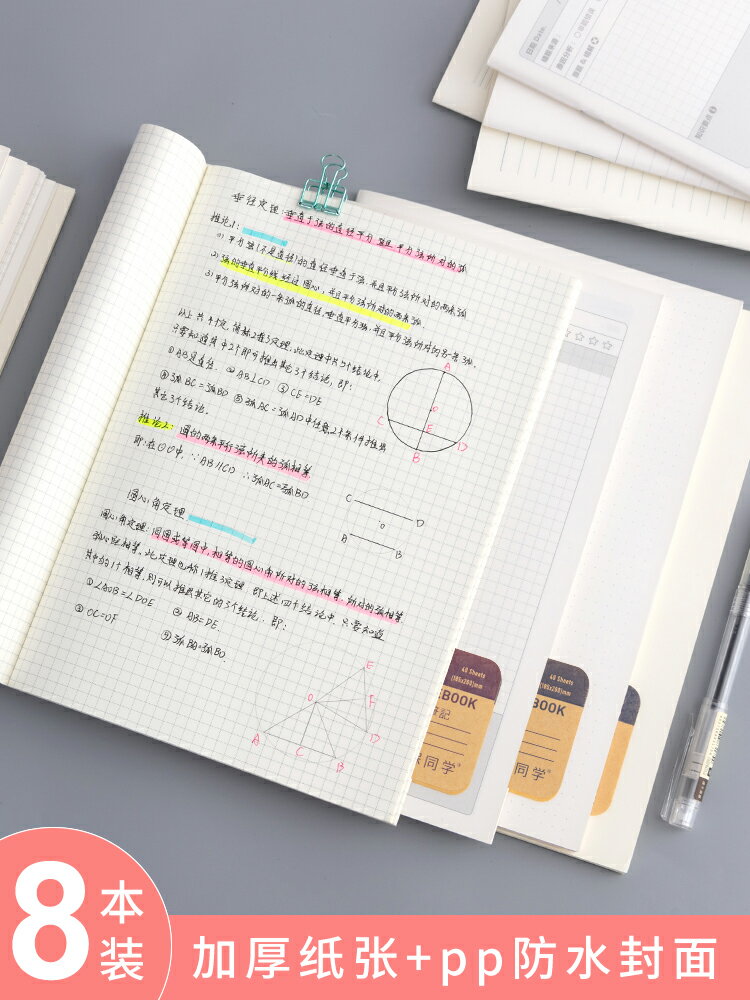 日期 Date.
垂径定理:垂直于弦的直径平分弦且平分弦所对的弧
推论1:
1) 平分弦(不是直径)的直径垂直于弦,并且平分弦所对的两条弧
2) 弦的垂直平分线经过圆心,并且平分弦所对的两条弧.
3) 平分弦所对的一条弧的直径,垂直平分弦,并且平分弦所对的另一条弧.
以上共4个定理,简称2推3定理,此定理中共5个结论中,
只要知道其中2个即可推出其它3个结论,即:
①AB是直径 ②AB⊥CD ③CE=DE
④弧BC=弧BD ⑤弧AC=弧AD 中任意2个条件推出
其它3个结论.
推论2: 圆的两条平行弦所夹的弧相等
即:在⊙O中,∵AB∥CD ∴弧AC=弧BD
A
O
C
E
D
B
C
D
O
A
B
圆心角定理
圆心角定理:同圆或等圆中,相等的圆心角所对的弦相等,所对的弧相等
弦心距相等,此定理也称1推3定理 即上述四个结论中,只要知道
其中的1个相等,则可以推出其它的3个结论. 即:
①∠AOB=∠DOE ②AB=DE
③OC=OF
E
F
O
D
A
C
B
40 Sheets
(185x260)mm
EBOOK
笔记
同学
40 Sheets
(185x260)mm
BOOK
同学
8本装
加厚纸张+pp防水封面